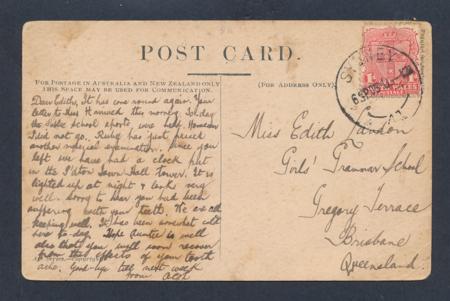 POST CARD.
FOR POSTAGE IN AUSTRALIA AND NEW ZEALAND ONLY
THIS SPACE MAY BE USED FOR COMMUNICATION.
(FOR ADDRESS ONLY).
SYDNEY
Dear Edith, It has come round again. Your
letter to Miss H arrived this morning. Saturday
the Public school sports was held. However
I did not go. Ruby has just passed
another musical examination. Since you
left we have had a clock put
in the Town Hall Tower. It is
lighted up at night & looks very
well. Sorry to hear you had been
suffering with your teeth. We are all
keeping well. It has been somewhat cold
here to-day. Hope Auntie is well
also that you will soon recover
from the effects of your tooth
ache. Good-bye till next week
from
Miss Edith
Girls' Grammar School
Gregory Terrace
Brisbane
Queensland.